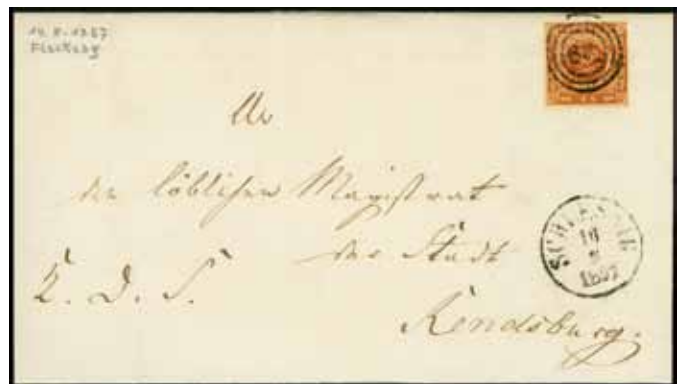 Fleckeby
An
den löblichen Magistrat
der Stadt
K. D. S.
Rendsburg.
SCHLESWIG
16
1857